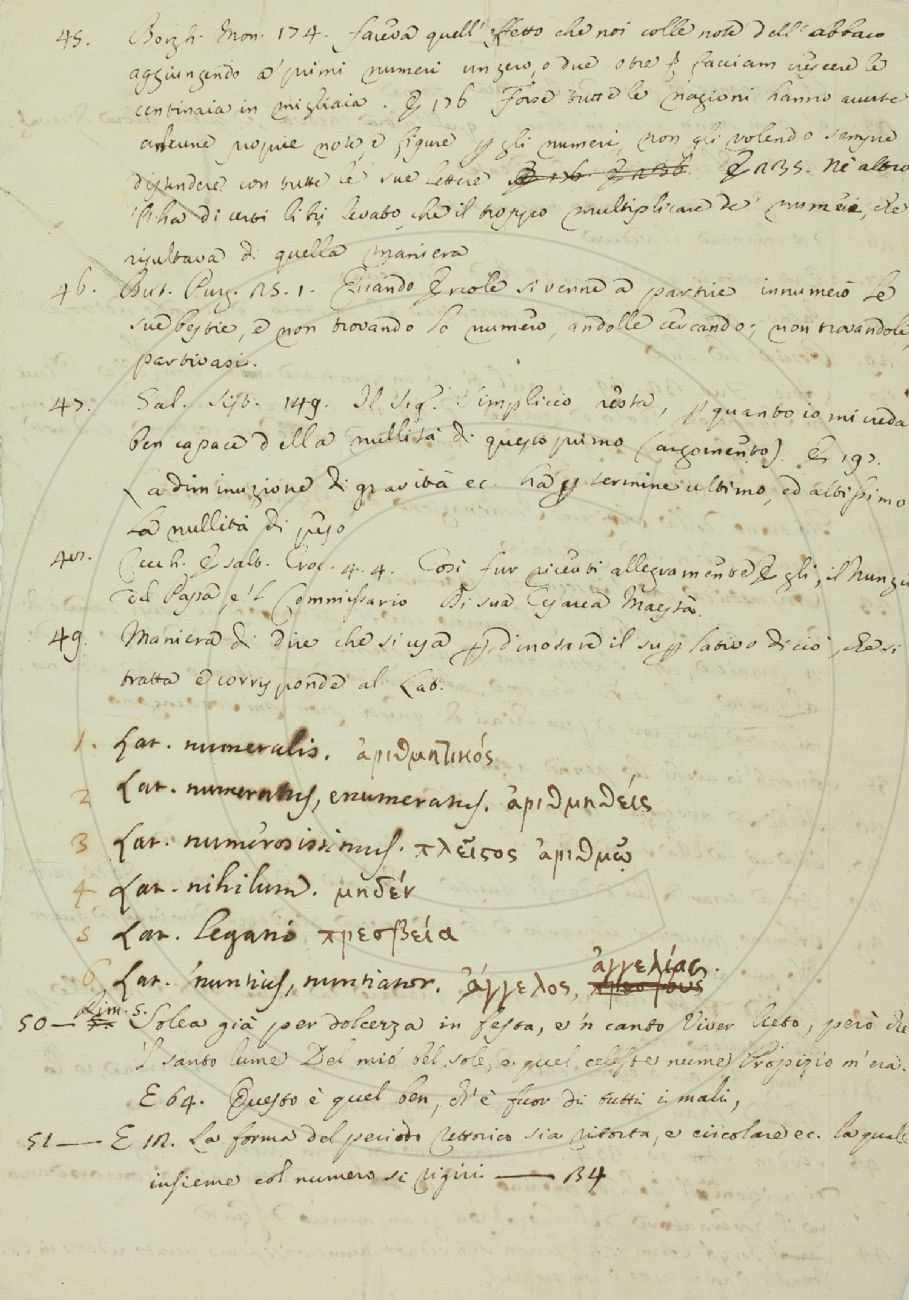 45. Borgh. Mon. 174. faceva quell' effetto che noi colle note dell' abbaco
aggiungendo a' primi numeri un zero, o due o tre facciam crescere le
centinaia in migliaia. E 176 Forse tutte le nazioni hanno avute
alcune proprie note e figure p gli numeri, non gli volendo sempre
distendere con tutte le sue lettere E 235. Nè altro
ha di certi libri levato, che il troppo multiplicare de' numeri, che
risultava di quella maniera
46. But. Purg. 25. 1. Quando Ercole si venne a partire innumerò le
sue bestie, e non trovando lo numero, andolle cercando; non trovandole,
partivasi.
47. Gal. Sist. 149. Il Sig. Simplicio resta, p quanto io mi creda
ben capace della nullità di questo primo (argomento). E 197.
La diminuzione di gravità ec. ha p termine ultimo, ed altissimo
la nullità di peso
48. Cecch. Esalt. Croc. 4. 4. Così fur ricevuti allegramente Egli, il Nunzio
del Papa, e 'l Commissario Di sua Cesarea Maestà.
49. Maniera di dire che si usa p dinotare il suplativo di ciò, che si
tratta e corrisponde al Lat.
1. Lat. numeralis. ἀριθμητικός
2 Lat. numeratus, enumeratus. ἀριθμηθείς
3 Lat. numerosissimus. πλεῖϛος ἀριθμῷ
4 Lat. nihilum. μηδέν
5 Lat. legatio πρεσβεία
6 Lat. nuntius, nuntiator. ἄγγελος, ἀγγελίας.
50— Rim. 5. Solea già per dolcezza in festa, e 'n canto Viver lieto, però che
'l santo lume Del mio bel sole, e quel celeste nume Propizio m' era.
E 64. Questo è quel ben, ch' è fuor di tutti i mali,
51— E 112. La forma del periodo rettorico sia ritorta, e circolare ec. la quale
insieme col numero si rigiri — 134